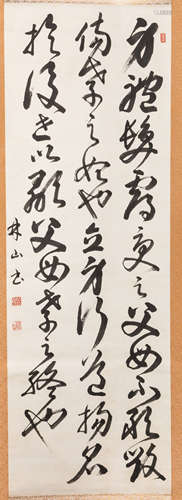 身體髮膚受之父母不敢毀
傷孝之始也立身行道揚名
於後世以顯父母孝之終也
林山書